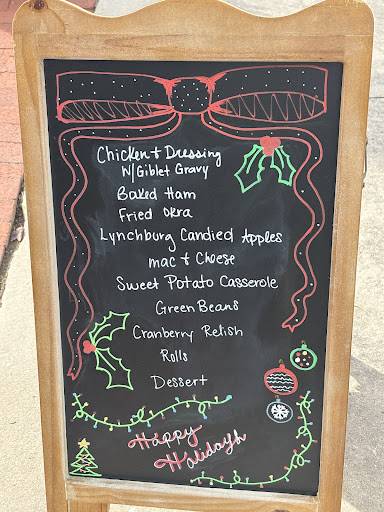 Chicken & Dressing
W/Giblet Gravy
Baked Ham
Fried Okra
Lynchburg Candied Apples
mac & Cheese
Sweet Potato Casserole
Green Beans
Cranberry Relish
Rolls
Dessert
Happy
Holidays